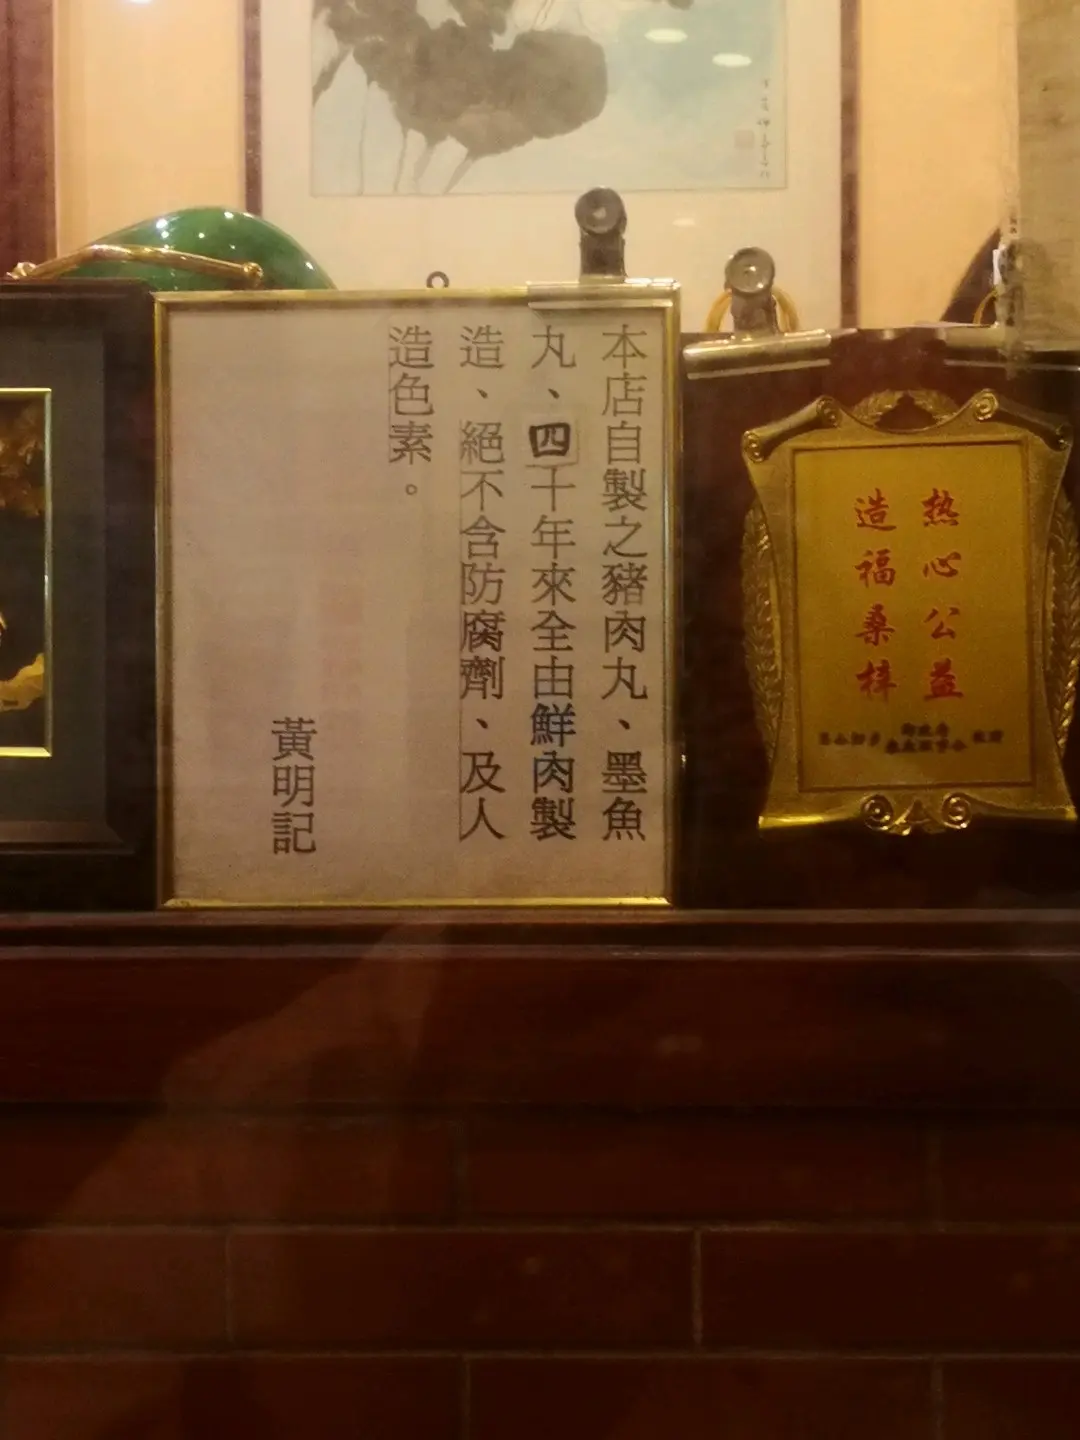 本店自製之豬肉丸、墨魚
丸、四十年來全由鮮肉製
造、絕不含防腐劑、及人
造色素。
黃明記
热心公益
造福桑梓